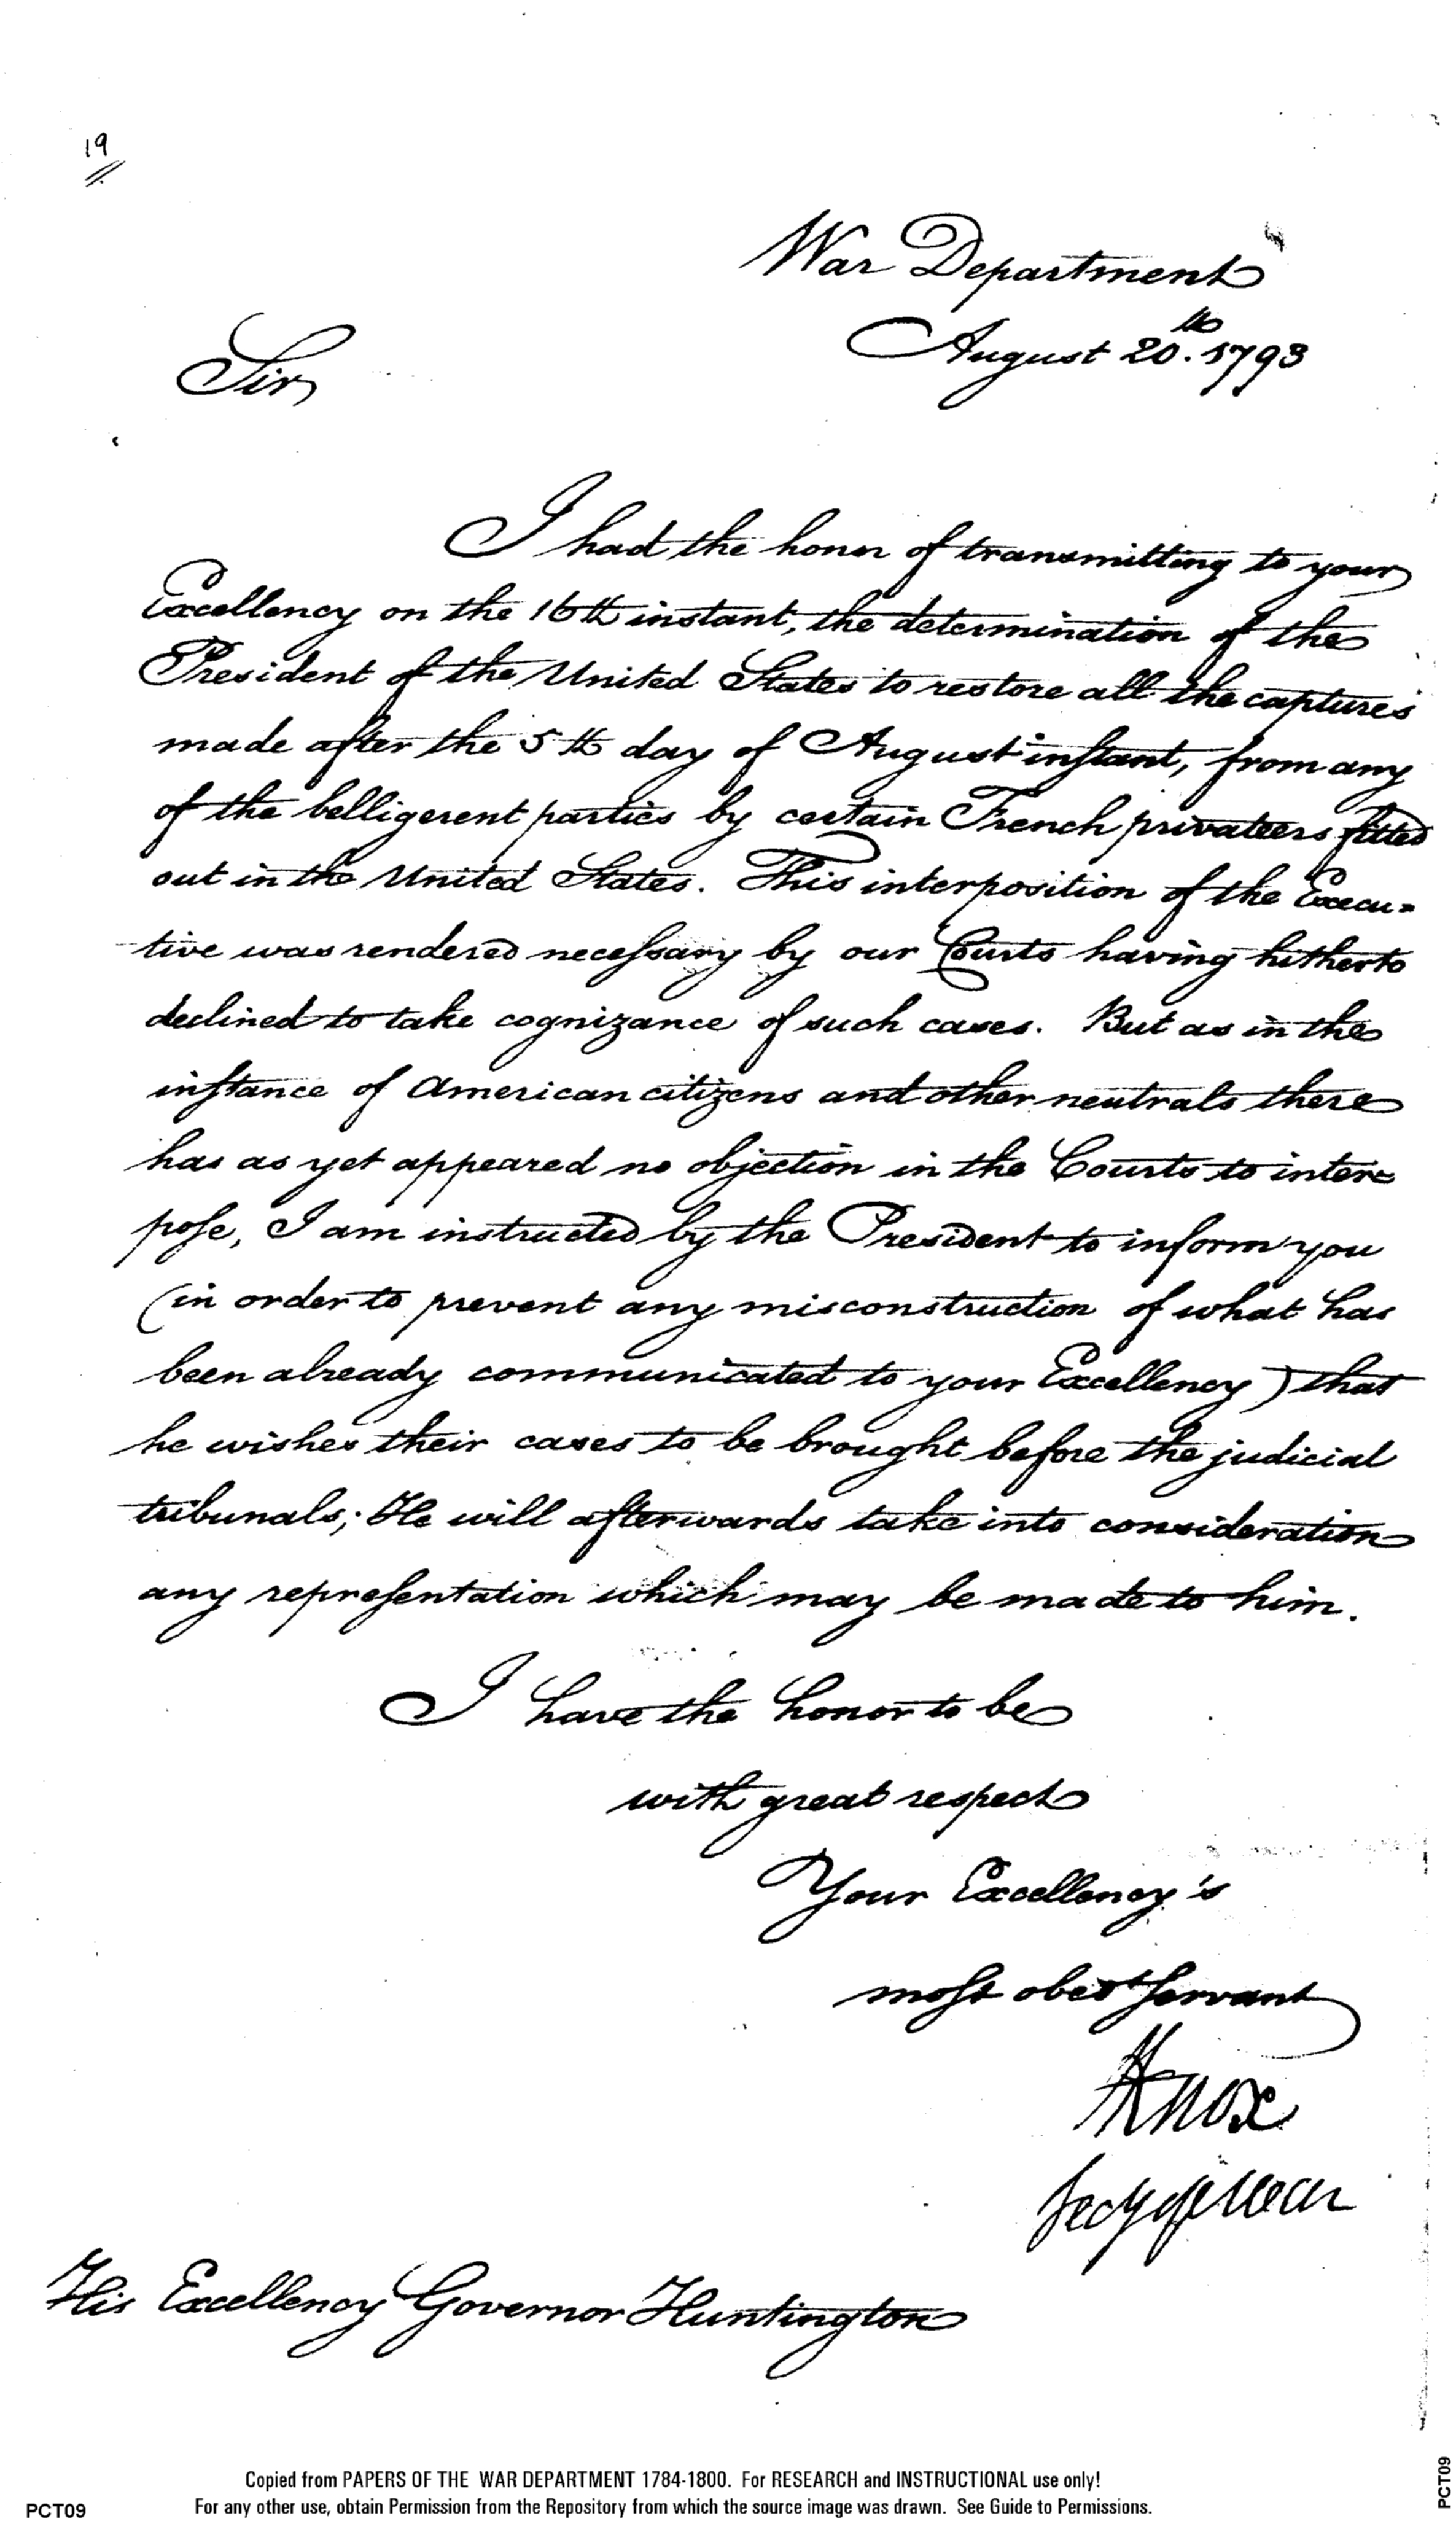 19
War Department
August 20.th 1793
Sir
I had the honor of transmitting to your
Excellency on the 16th instant, the determination of the
President of the United States to restore all the captures
made after the 5th day of August instant, from any
of the belligerent parties by certain French privateers fitted
out in the United States. This interposition of the Execu=
tive was rendered necessary by our Courts having hitherto
declined to take cognizance of such cases. But as in the
instance of American citizens and other neutrals there
has as yet appeared no objection in the Courts to inter=
pose, I am instructed by the President to inform you
(in order to prevent any misconstruction of what has
been already communicated to your Excellency) that
he wishes their cases to be brought before the judicial
tribunals; He will afterwards take into consideration
any representation which may be made to him.
I have the honor to be
with great respect
Your Excellency's
most obedt servant
HKnox
Secy of War
His Excellency Governor Huntington
Copied from PAPERS OF THE WAR DEPARTMENT 1784-1800. For RESEARCH and INSTRUCTIONAL use only!
PCT09 For any other use, obtain Permission from the Repository from which the source image was drawn. See Guide to Permissions.
PCT09